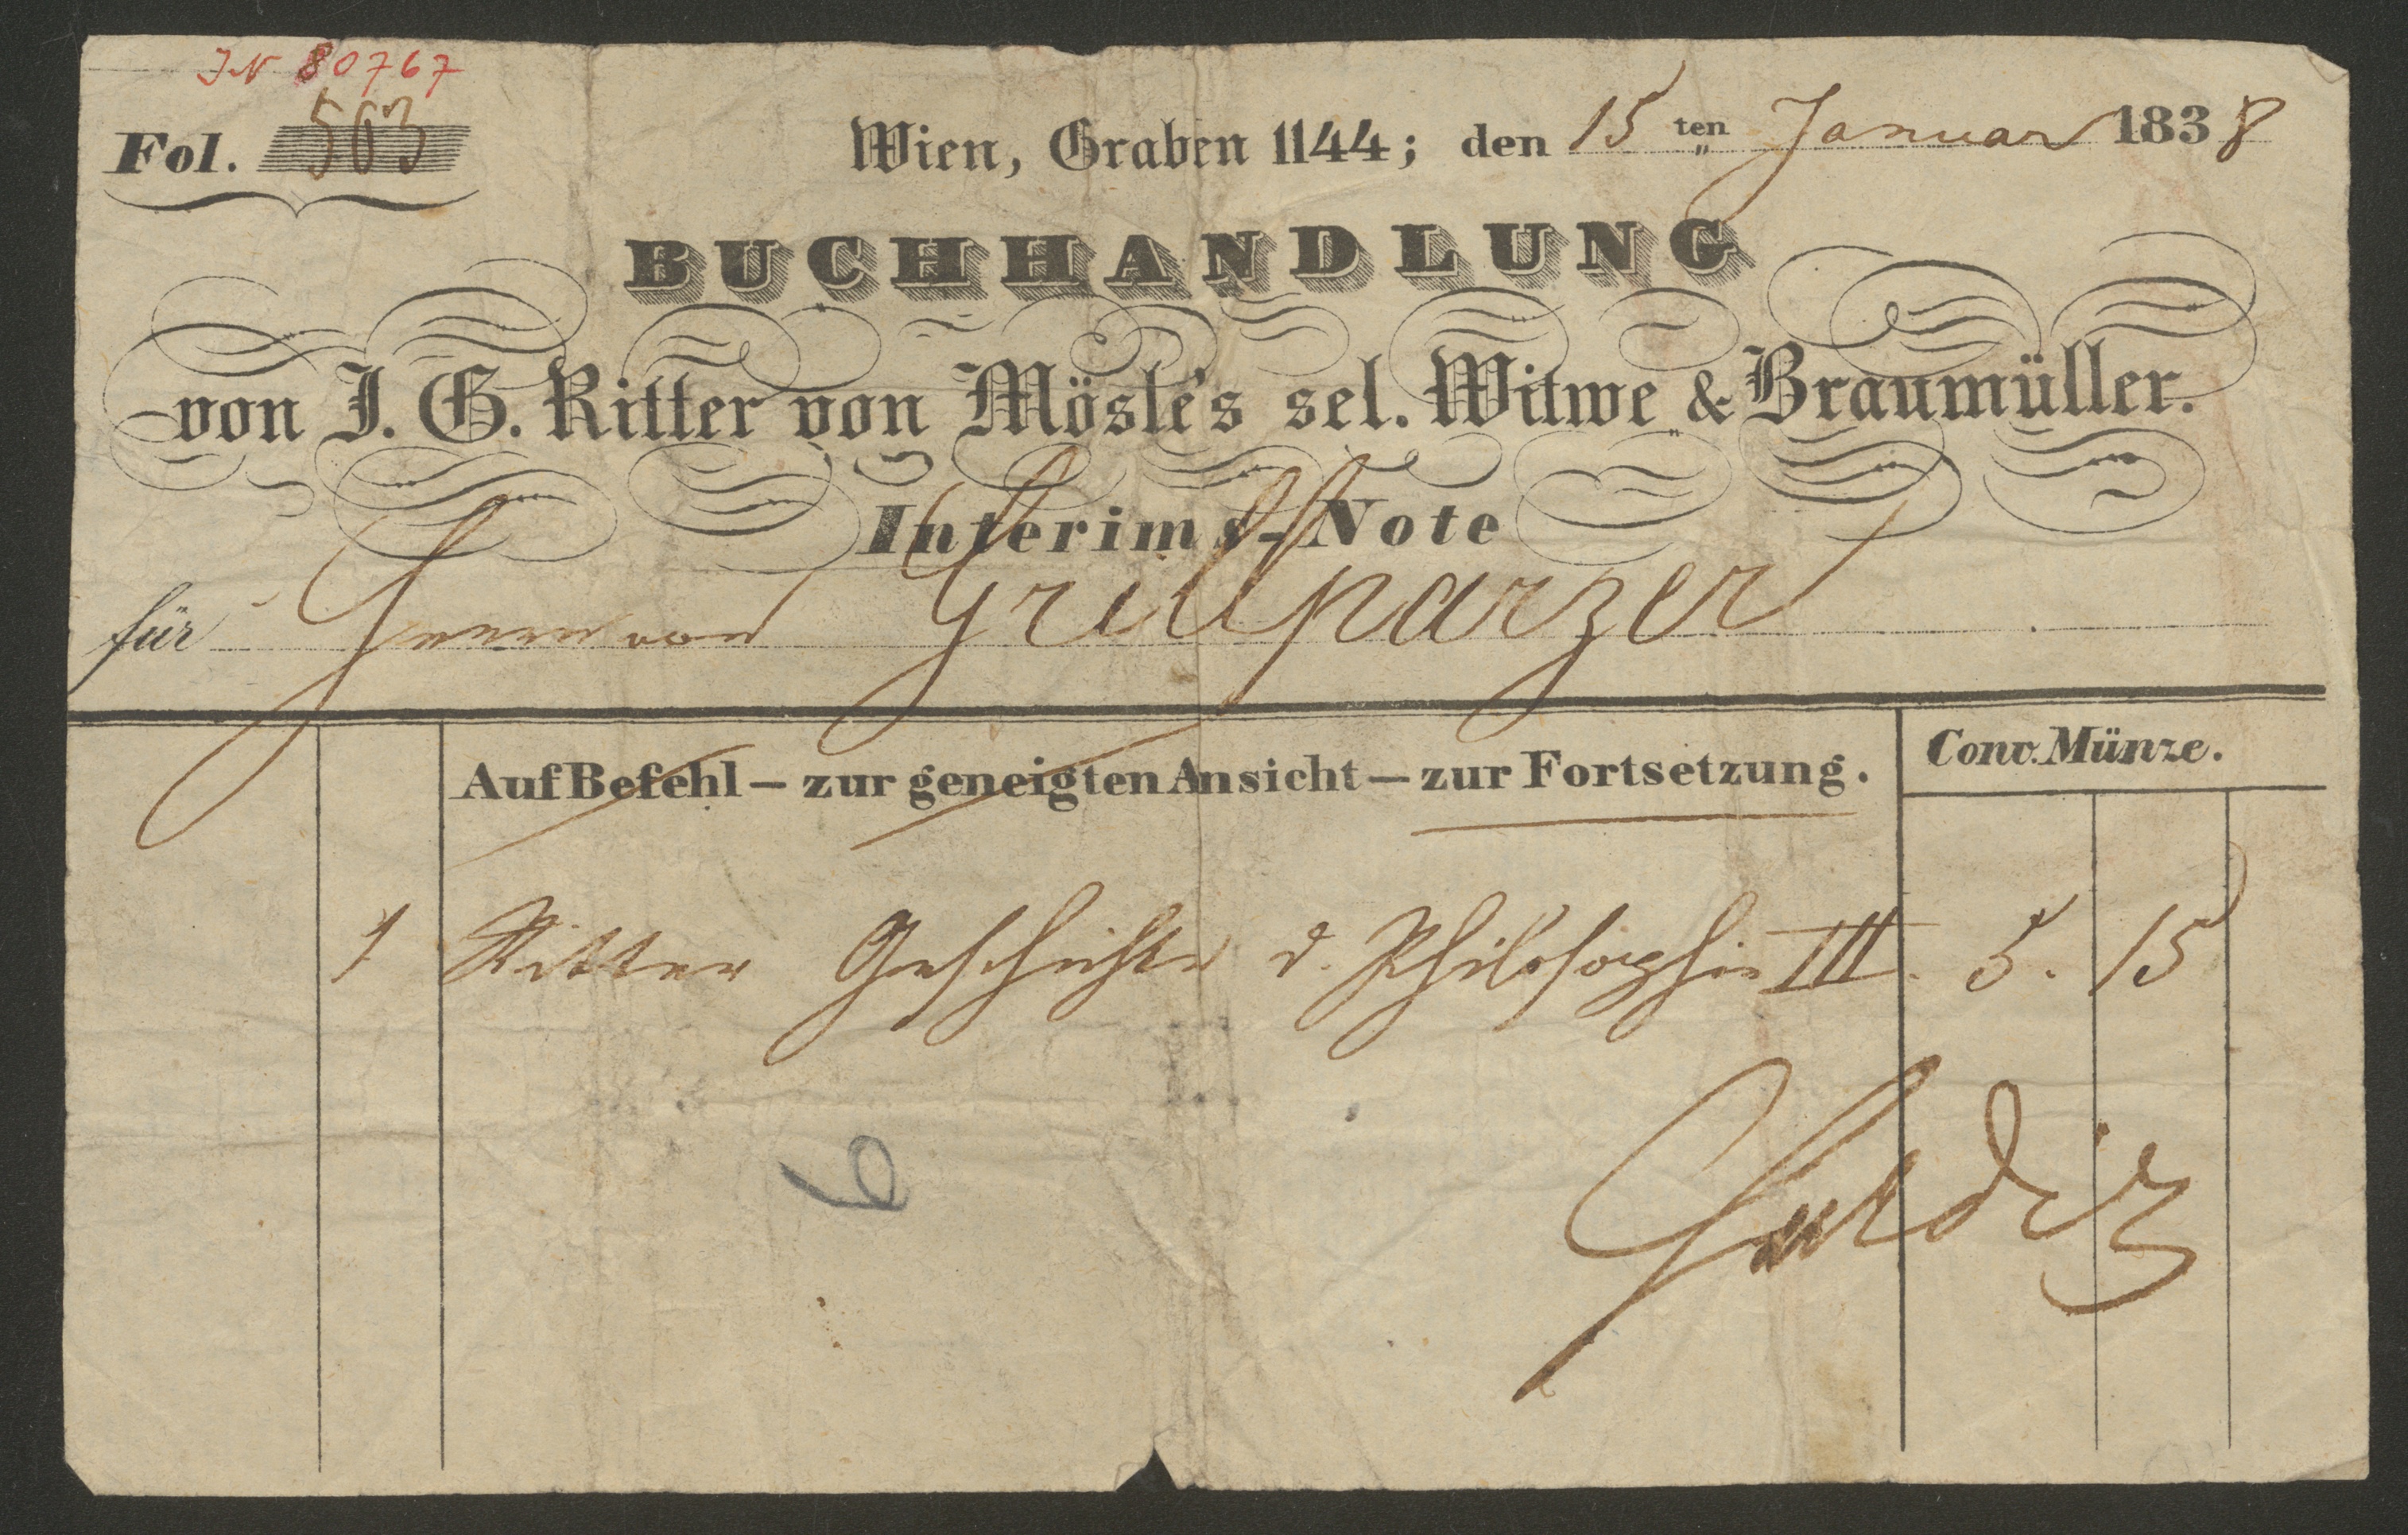 IN 80767
Fol. 563
Wien, Graben 1144; den 15 ten Januar 1838
BUCHHANDLUNG
von J. G. Ritter von Mösle's sel. Witwe & Braumüller.
Interims-Note
für Herrn von Grillparzer
Auf Befehl – zur geneigten Ansicht – zur Fortsetzung.
Conv. Münze.
1 Ritter Geschichte d. Philosophie III. 5. 15